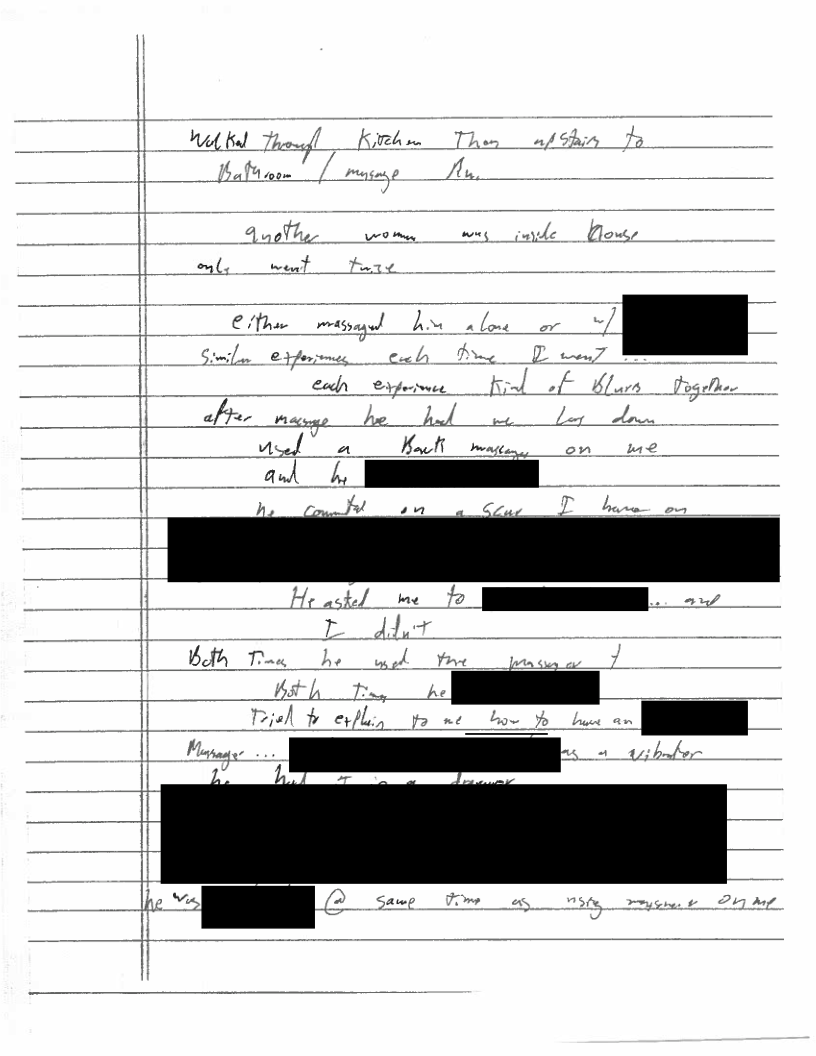 Walked through Kitchen Then upstairs to
Bathroom / massage Rm.
another woman was inside house
only went twice
either massaged him alone or w/
Similar experiences each time I went ...
each experience kind of blurs together
after massage he had me lay down
used a Back massager on me
and he
he commented on a scar I have on
He asked me to ... and
I didn't
Both Times he used the massager
Both times he
Tried to explain to me how to have an
Massager ... as a vibrator
he had it in a drawer
he was @ same time as using massager on me